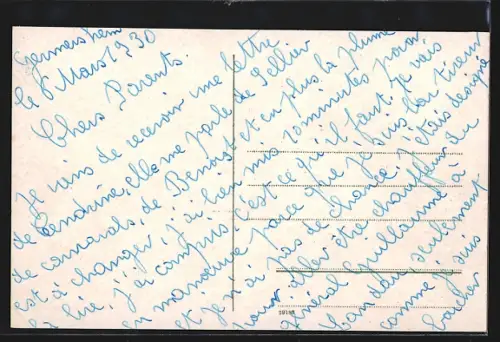 Germersheim
le 8 Mars 1930
Chers Parents.
Je viens de recevoir une lettre
de Sandrine, elle me parle de Tellier
de camarade de Benoist et en plus la plume
est à changer j'ai bien mis 10 minutes pour
la lire, j'ai compris c'est ce qu'il faut. Je vais
en manœuvre parce que je suis bon tireur
et je n'ai pas de chance, j'étais désigné
pour aller être chauffeur du
général Guillaume à
Landau, seulement
comme je suis
cocher
18190